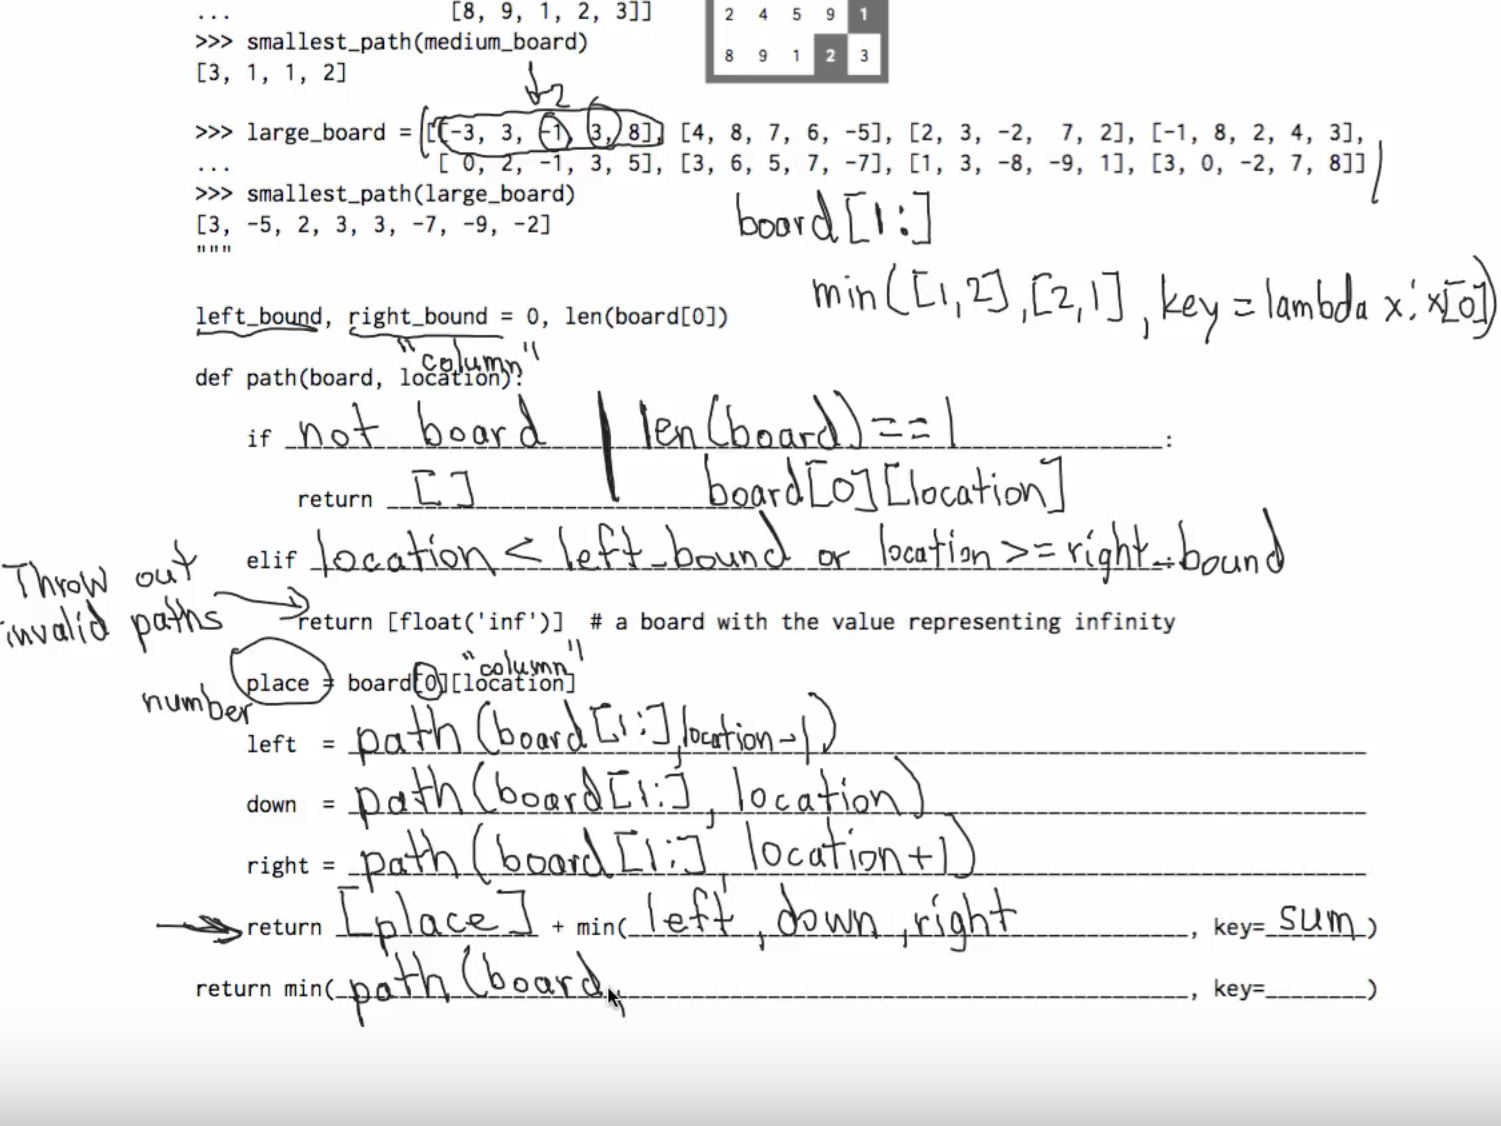 ... [8, 9, 1, 2, 3]]
2 4 5 9 1
>>> smallest_path(medium_board)
8 9 1 2 3
[3, 1, 1, 2]
2
>>> large_board = [[-3, 3, -1, 3, 8], [4, 8, 7, 6, -5], [2, 3, -2, 7, 2], [-1, 8, 2, 4, 3],
... [ 0, 2, -1, 3, 5], [3, 6, 5, 7, -7], [1, 3, -8, -9, 1], [3, 0, -2, 7, 8]]
>>> smallest_path(large_board)
[3, -5, 2, 3, 3, -7, -9, -2]
"""
board[1:]
min([1,2],[2,1], key=lambda x: x[0])
left_bound, right_bound = 0, len(board[0])
"column"
def path(board, location):
if not board | len(board)==1 :
return [] board[0][location]
elif location < left_bound or location >= right_bound
Throw out invalid paths
return [float('inf')] # a board with the value representing infinity
"column"
place = board[0][location]
number
left = path(board[1:], location-1)
down = path(board[1:], location)
right = path(board[1:], location+1)
return [place] + min( left, down, right , key= sum )
return min( path(board, , key=______)